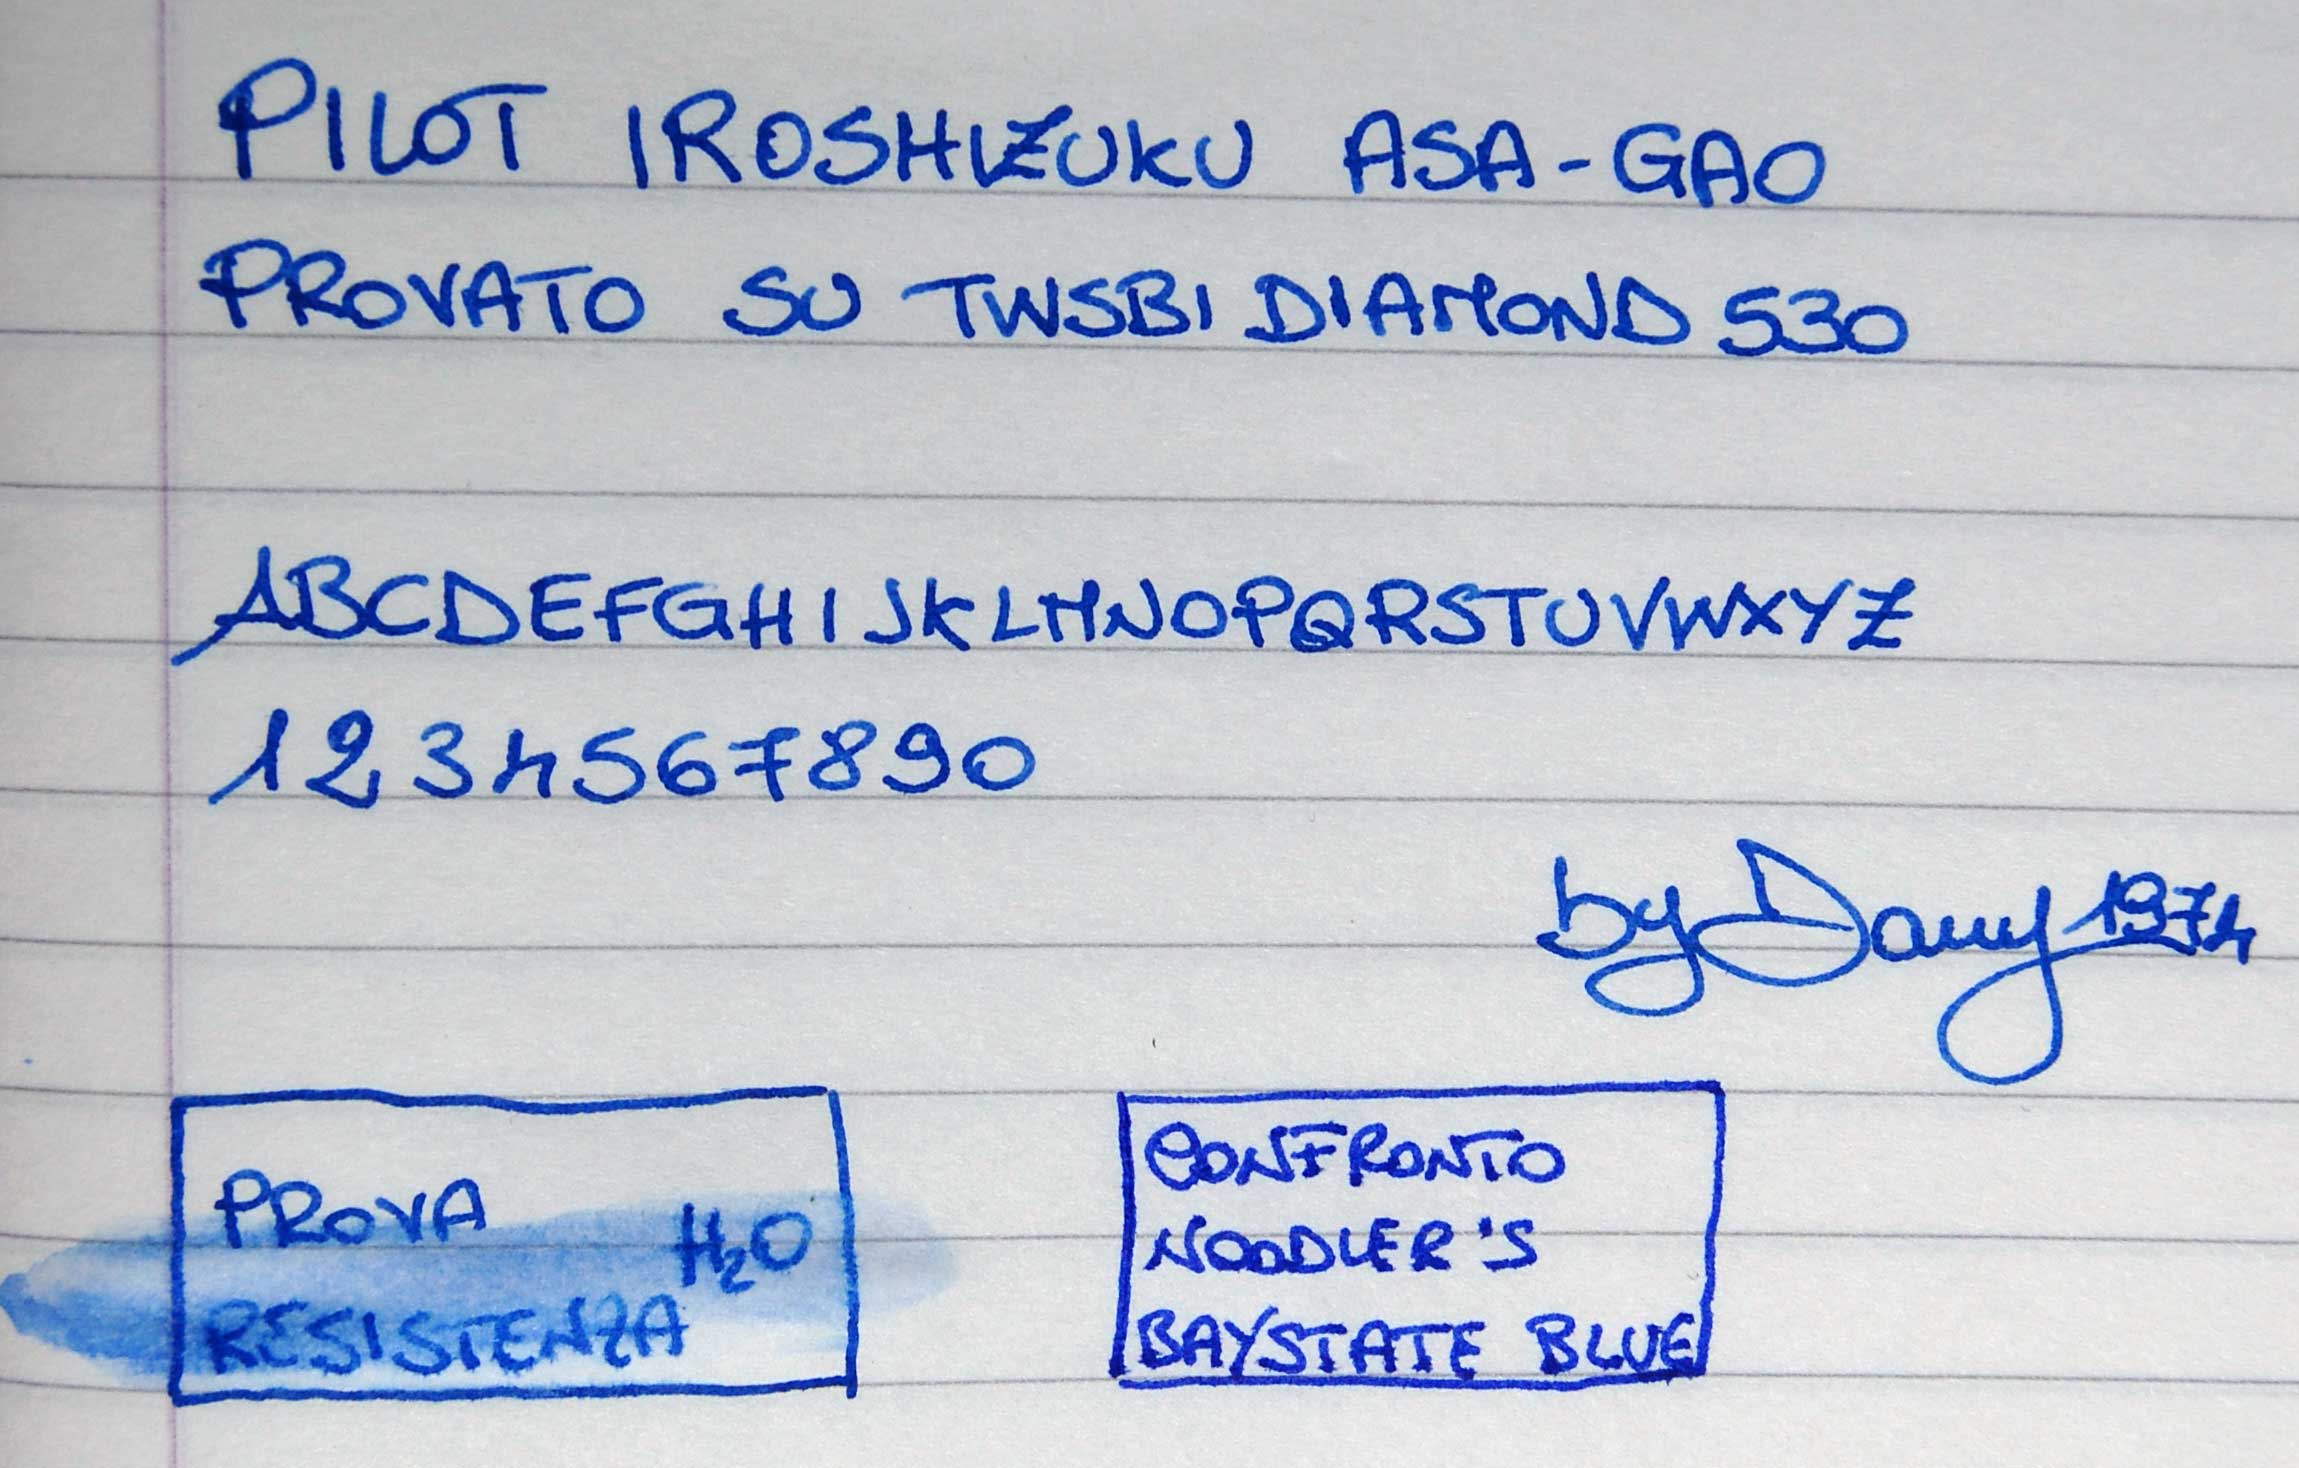 PILOT IROSHIZUKU ASA-GAO
PROVATO SU TWSBI DIAMOND 530
ABCDEFGHIJKLMNOPQRSTUVWXYZ
1234567890
by Dany 1974
PROVA H₂O
RESISTENZA
CONFRONTO
NOODLER'S
BAYSTATE BLUE